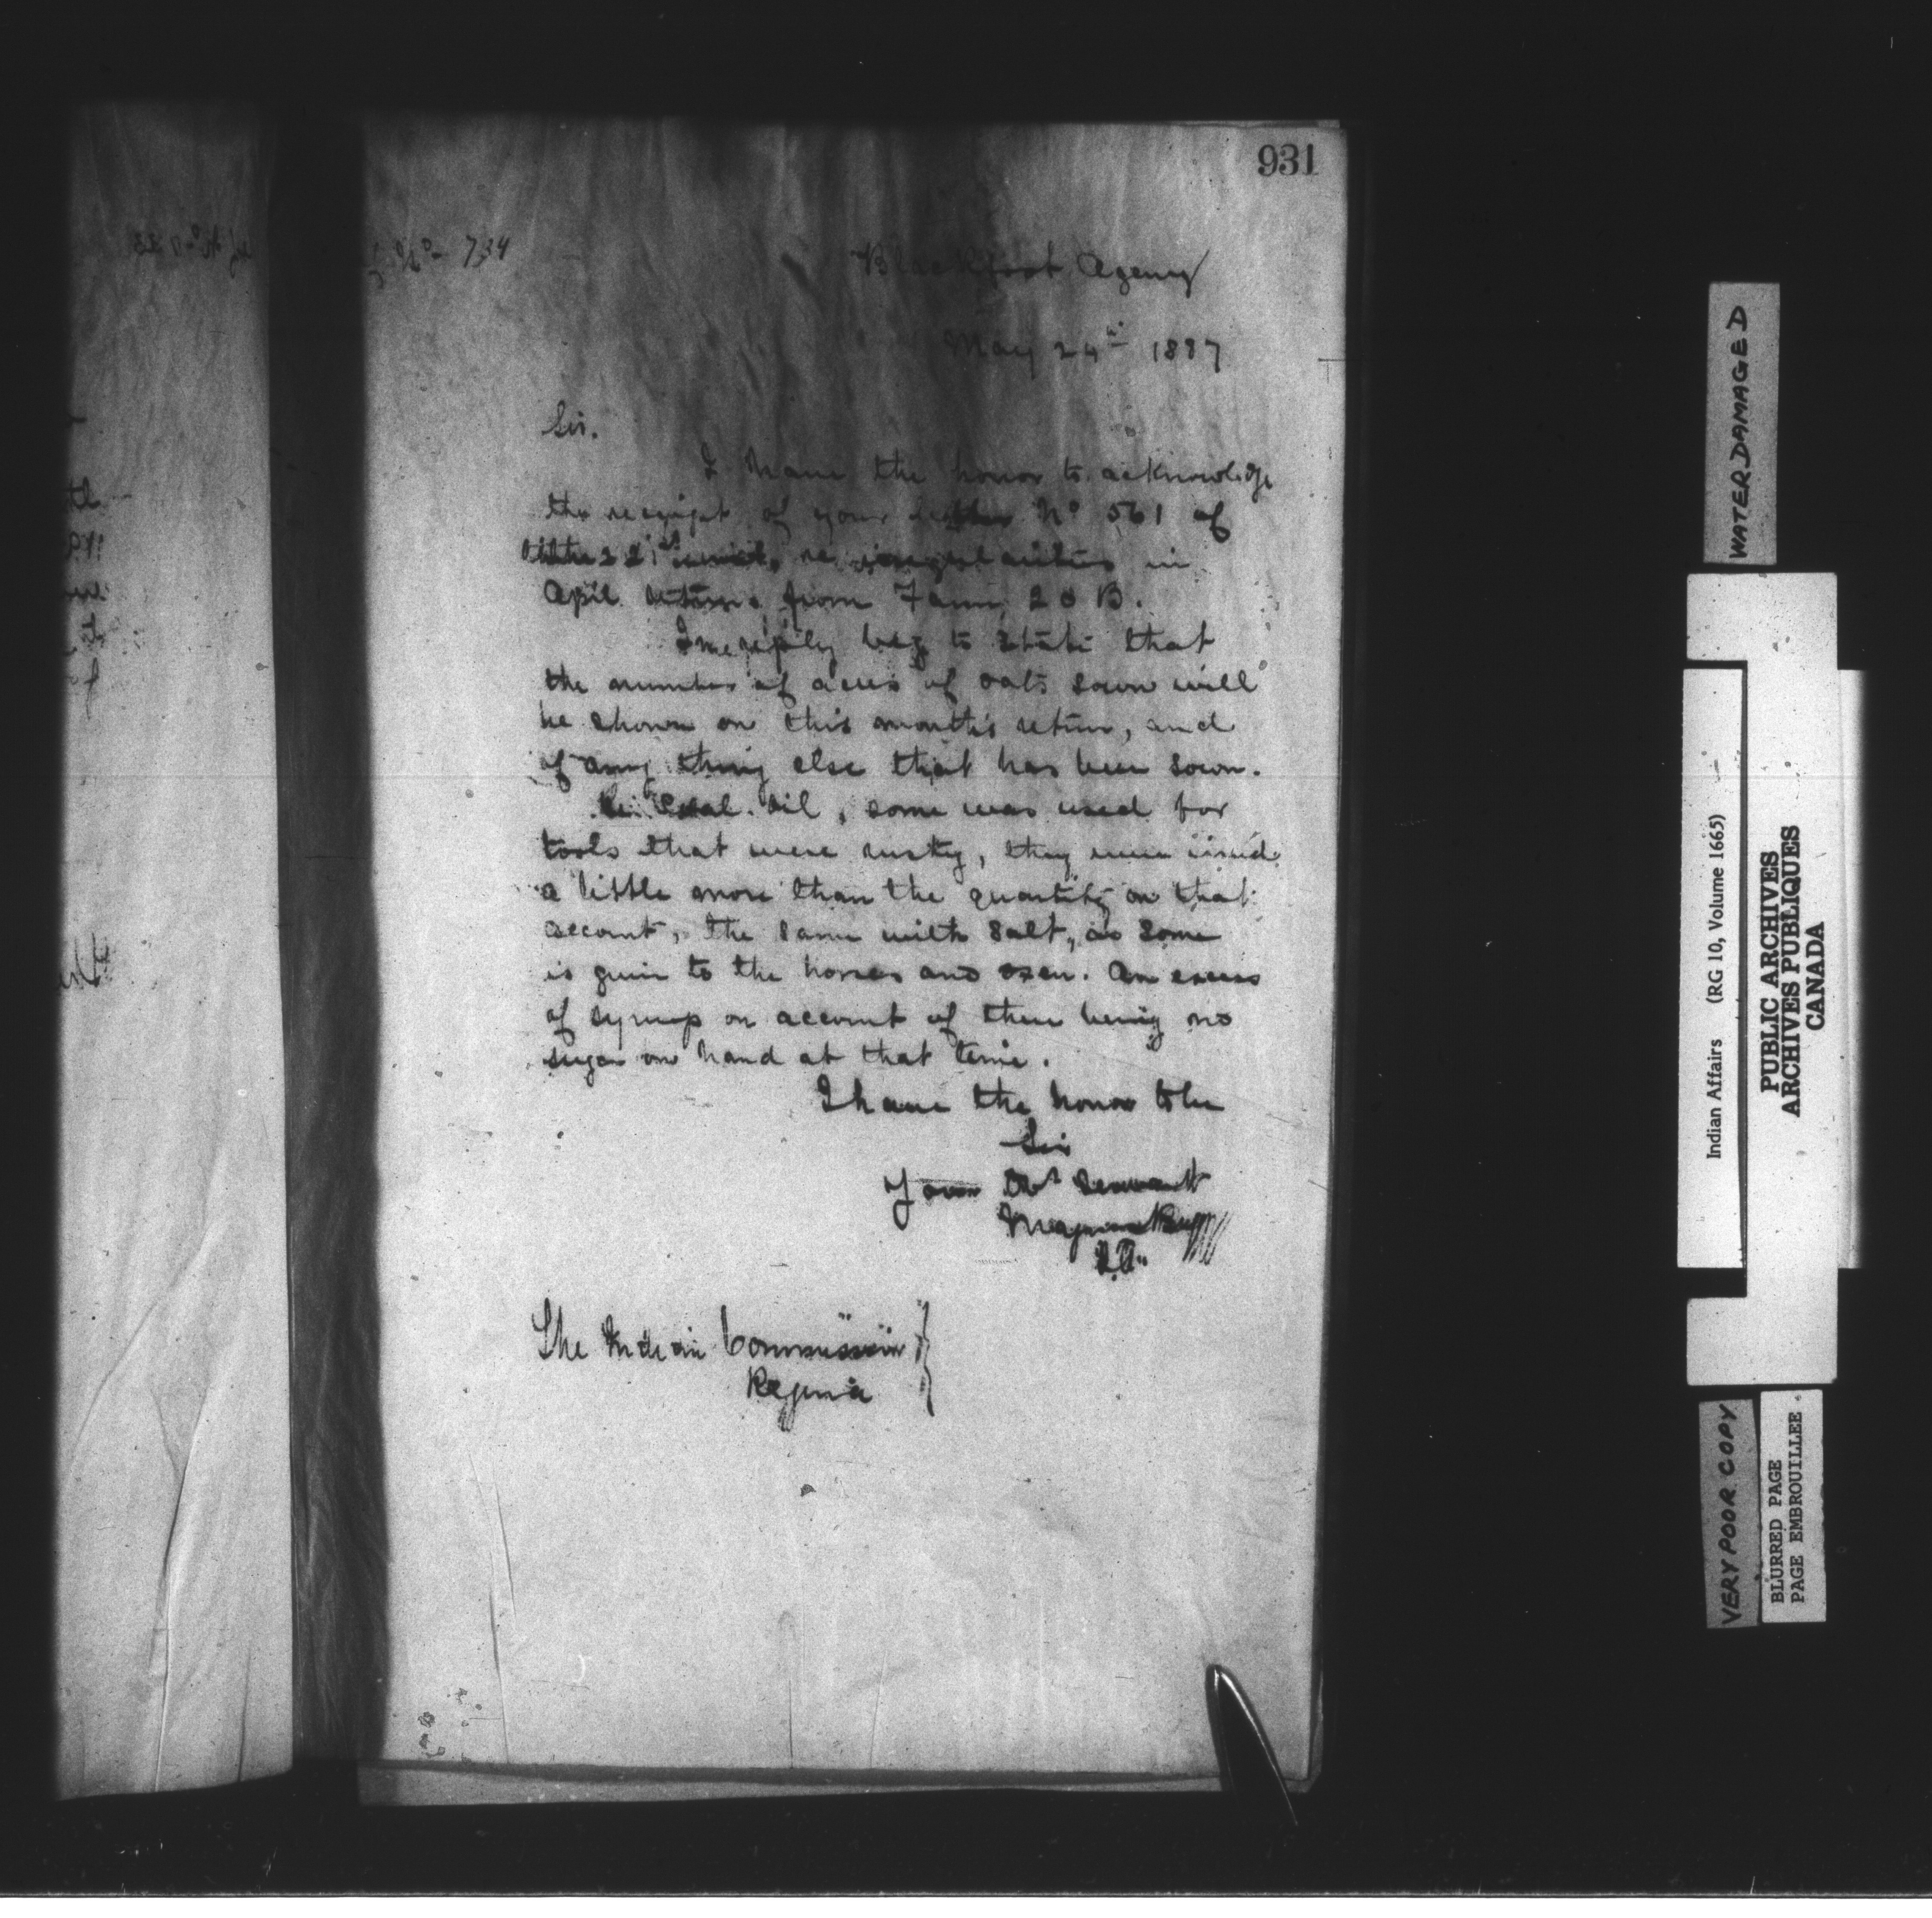 931
No 734
Blackfoot Agency
May 24th 1887
Sir.
I have the honor to acknowledge
the receipt of your letter No 561 of
the 21st re irregularities in
April returns from Farm 20 B.
In reply beg to state that
the number of acres of oats sown will
be shown on this month's return, and
of any thing else that has been sown.
Re Coal oil, some was used for
tools that were rusty, they were issued
a little more than the quantity on that
account, the same with salt, as some
is given to the horses and oxen. An excess
of syrup on account of there being no
sugar on hand at that time.
I have the honor to be
Sir
Your Obt Servant
Magnus Begg
I.A.
The Indian Commissioner
Regina
WATER DAMAGED
Indian Affairs (RG 10, Volume 1665)
PUBLIC ARCHIVES
ARCHIVES PUBLIQUES
CANADA
VERY POOR COPY
BLURRED PAGE
PAGE EMBROUILLEE